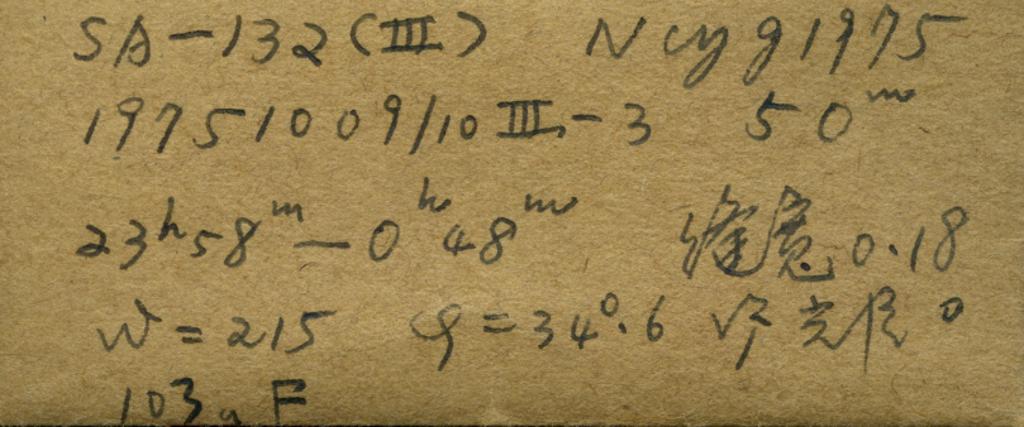 SA-132(III) N cyg 1975
19751009/10 III-3 50ᵐ
23ʰ58ᵐ-0ʰ48ᵐ 缝宽0.18
W=215 φ=34°.6 光阑0
103aF